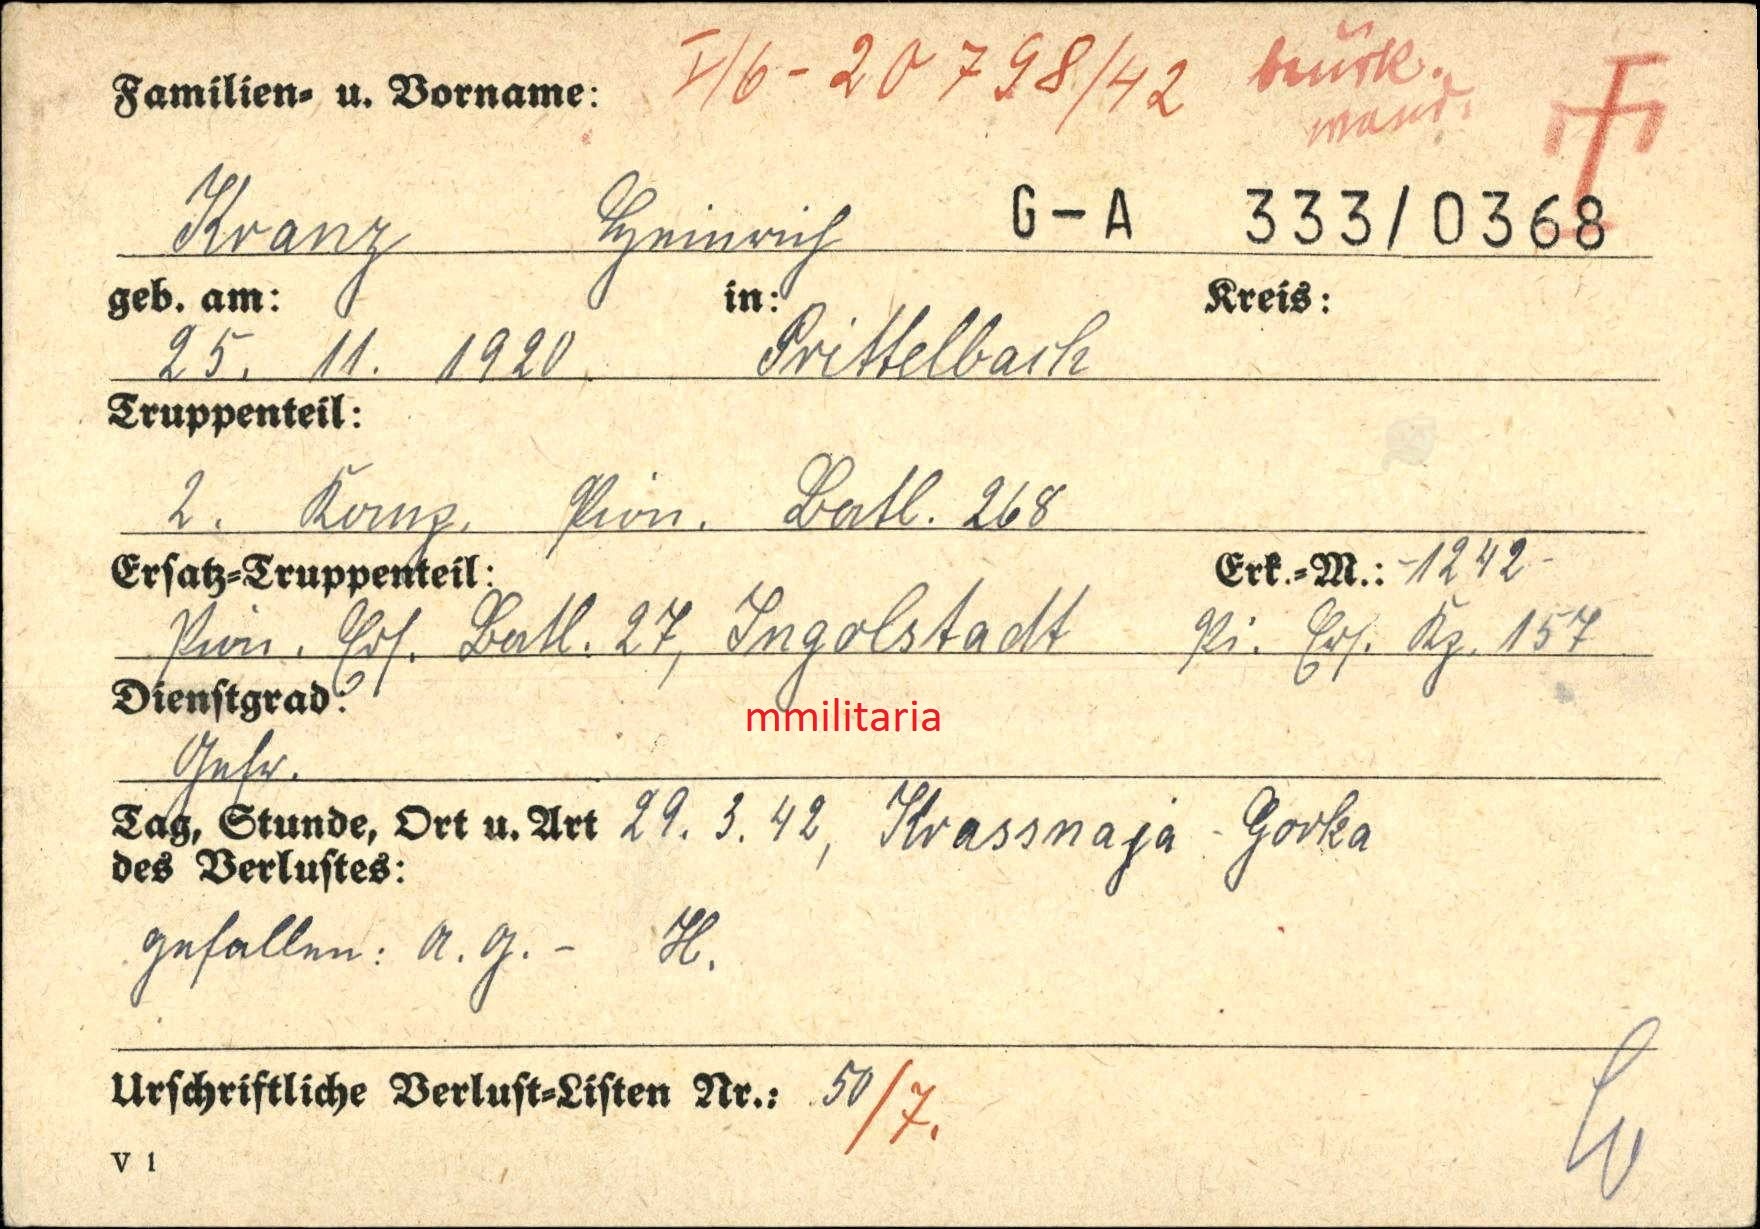 Familien- u. Vorname: V/6-20798/42 beurk.
Kranz Heinrich G-A 333/0368
geb. am: in: Kreis:
25. 11. 1920 Prittelbach
Truppenteil:
2. Komp. Pion. Batl. 268
Ersatz-Truppenteil: Erk.-M.: -1242-
Pion. Ers. Batl. 27, Ingolstadt Pi. Ers. Kp. 157
Dienstgrad:
mmilitaria
Gefr.
Tag, Stunde, Ort u. Art 29. 3. 42, Krassnaja-Gorka
des Verlustes:
gefallen: A. G. - H.
Urschriftliche Verlust-Listen Nr.: 50/7.
V 1